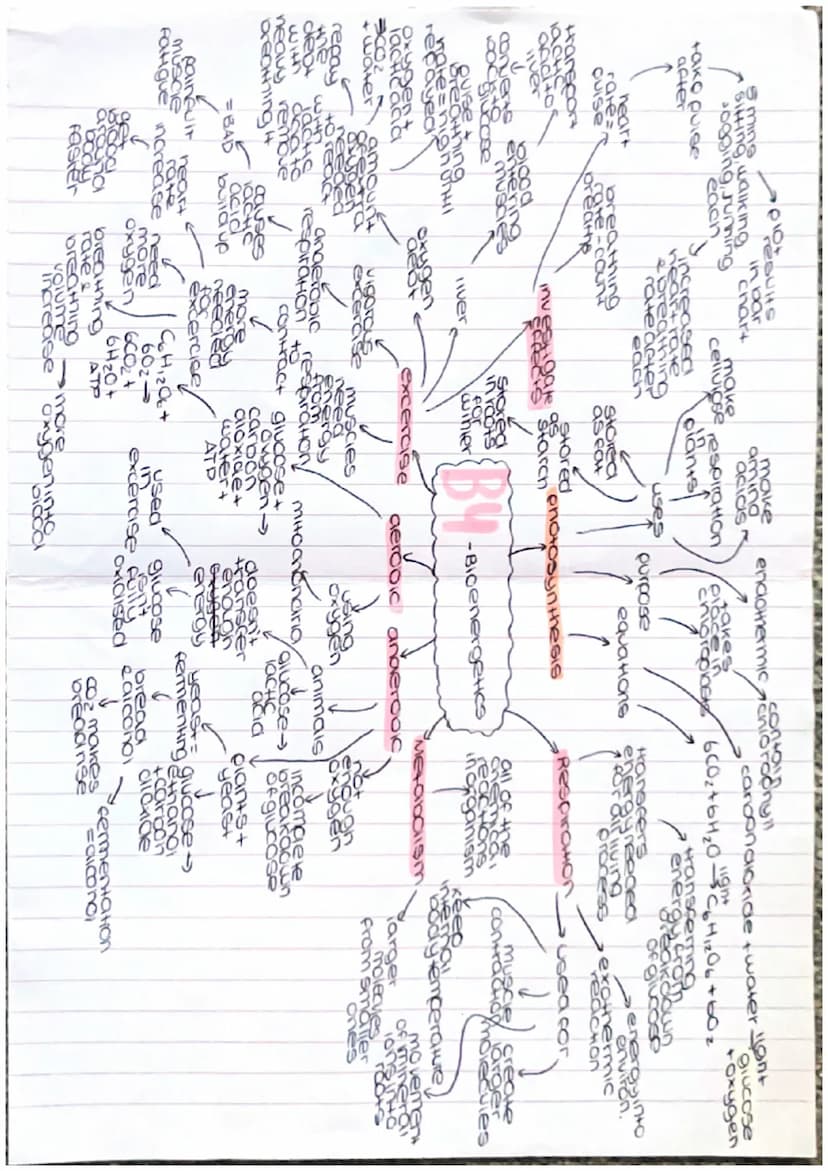 B4
-Bioenergetics
photosynthesis
uses
stored
as fat
stored
as
starch
stored
in roots
for
winter
make
cellulose
respiration
in
plants
make
amino
acids
purpose
endothermic
takes
place in
chloroplasts
contain
chlorophyll
equations
carbon dioxide + water light→ glucose
+ oxygen
6CO2 + 6H2O light→ C6H12O6 + 6O2
Respiration
transfers
energy needed
for all living
process
transferring
energy from
breakdown
of glucose
exothermic
reaction
energy into
environ.
used for
create
larger
molecules
muscle
contraction
keep
internal
body temperature
movement
of mineral
ions into
roots
Metabolism
all of the
chemical
reactions
in organism
larger
molecules
from smaller
ones
anaerobic
not
enough
oxygen
incomplete
breakdown
of glucose
animals
glucose →
lactic
acid
doesn't
transfer
enough
energy
glucose
isn't
fully
oxidised
used
in
excercise
plants +
yeast
glucose →
ethanol
+ carbon
dioxide
yeast =
fermenting
bread
& alcohol
CO2 makes
bread rise
fermentation
= alcohol
aerobic
using
oxygen
mitochondria
glucose +
oxygen →
carbon
dioxide +
water +
ATP
C6H12O6 +
6O2 →
6CO2 +
6H2O +
ATP
excercise
muscles
need
energy
from
respiration
to
contract
more
energy
needed
for
excercise
need
more
oxygen
breathing
rate &
breathing
volume
increase
more
oxygen into
blood
heart
rate
increase
get
blood
around
body
faster
vigorous
excercise
anaerobic
respiration
causes
lactic
acid
buildup
= BAD
painful +
muscle
fatigue
oxygen
debt
amount
of extra
oxygen
needed
to react
with
lactic
acid to
remove
pulse +
breathing
rate = high until
repayed
oxygen +
lactic acid
= CO2
+ water
repay
the
debt
with
heavy
breathing
liver
blood
entering
muscles
transport
lactic
acid to
liver
converts
back to
glucose
investigate
effects
breathing
rate - count
breaths
heart
rate =
pulse
take pulse
after
5 mins
sitting, walking
jogging, running
each
plot
results
in bar
chart
increased
heart rate
& breathing
rate after
each